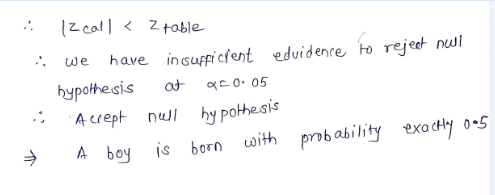 ∴ |Z cal| < Z table
∴ we have insufficient edvidence to reject null
hypothesis at α=0.05
∴ Accept null hypothesis
⇒ A boy is born with probability exactly 0.5